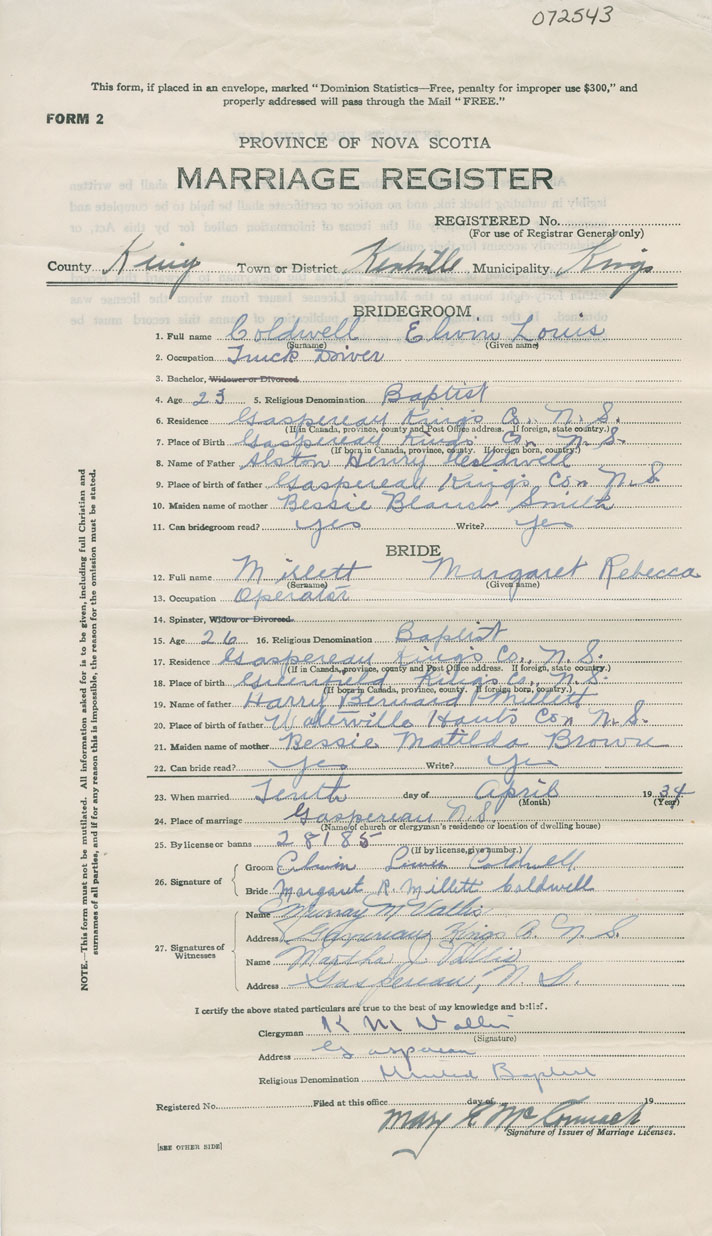 072543
This form, if placed in an envelope, marked "Dominion Statistics—Free, penalty for improper use $300," and
properly addressed will pass through the Mail "FREE."
FORM 2
PROVINCE OF NOVA SCOTIA
MARRIAGE REGISTER
REGISTERED No.
(For use of Registrar General only)
County Kings Town or District Kentville Municipality Kings
BRIDEGROOM
1. Full name Coldwell Elwin Louis
(Surname) (Given name)
2. Occupation Truck Driver
3. Bachelor, Widower or Divorced
4. Age 23 5. Religious Denomination Baptist
6. Residence Gaspereau Kings Co., N. S.
(If in Canada, province, county and Post Office address. If foreign, state country.)
7. Place of Birth Gaspereau Kings Co., N. S.
(If born in Canada, province, county. If foreign born, country.)
8. Name of Father Alston Henry Coldwell
9. Place of birth of father Gaspereau King's Co., N. S
10. Maiden name of mother Bessie Blanch Smith
11. Can bridegroom read? yes Write? yes
BRIDE
12. Full name Millett Margaret Rebecca
(Surname) (Given name)
13. Occupation Operator
14. Spinster, Widow or Divorced
15. Age 26 16. Religious Denomination Baptist
17. Residence Gaspereau King's Co., N. S.
(If in Canada, province, county and Post Office address. If foreign, state country.)
18. Place of birth Greenfield King's Co., N. S.
(If born in Canada, province, county. If foreign born, country.)
19. Name of father Harry Bernard Millett
20. Place of birth of father Waterville Hants Co., N. S.
21. Maiden name of mother Bessie Matilda Brown
22. Can bride read? yes Write? yes
23. When married Tenth day of April 1934
(Month) (Year)
24. Place of marriage Gaspereau N. S.
(Name of church or clergyman's residence or location of dwelling house)
25. By license or banns 28185
(If by license, give number.)
26. Signature of Groom Elwin Coldwell
Bride Margaret R. Millett Coldwell
27. Signatures of Witnesses
Name Murray M Vallis
Address Gaspereau, Kings Co. N. S.
Name Martha J Vallis
Address Gaspereau, N. S.
I certify the above stated particulars are true to the best of my knowledge and belief.
Clergyman K M Vallis
(Signature)
Address Gaspereau
Religious Denomination United Baptist
Registered No. Filed at this office day of 19
Mary E McCormack
Signature of Issuer of Marriage Licenses.
[SEE OTHER SIDE]
NOTE.—This form must not be mutilated. All information asked for is to be given, including full Christian and
surnames of all parties, and if for any reason this is impossible, the reason for the omission must be stated.